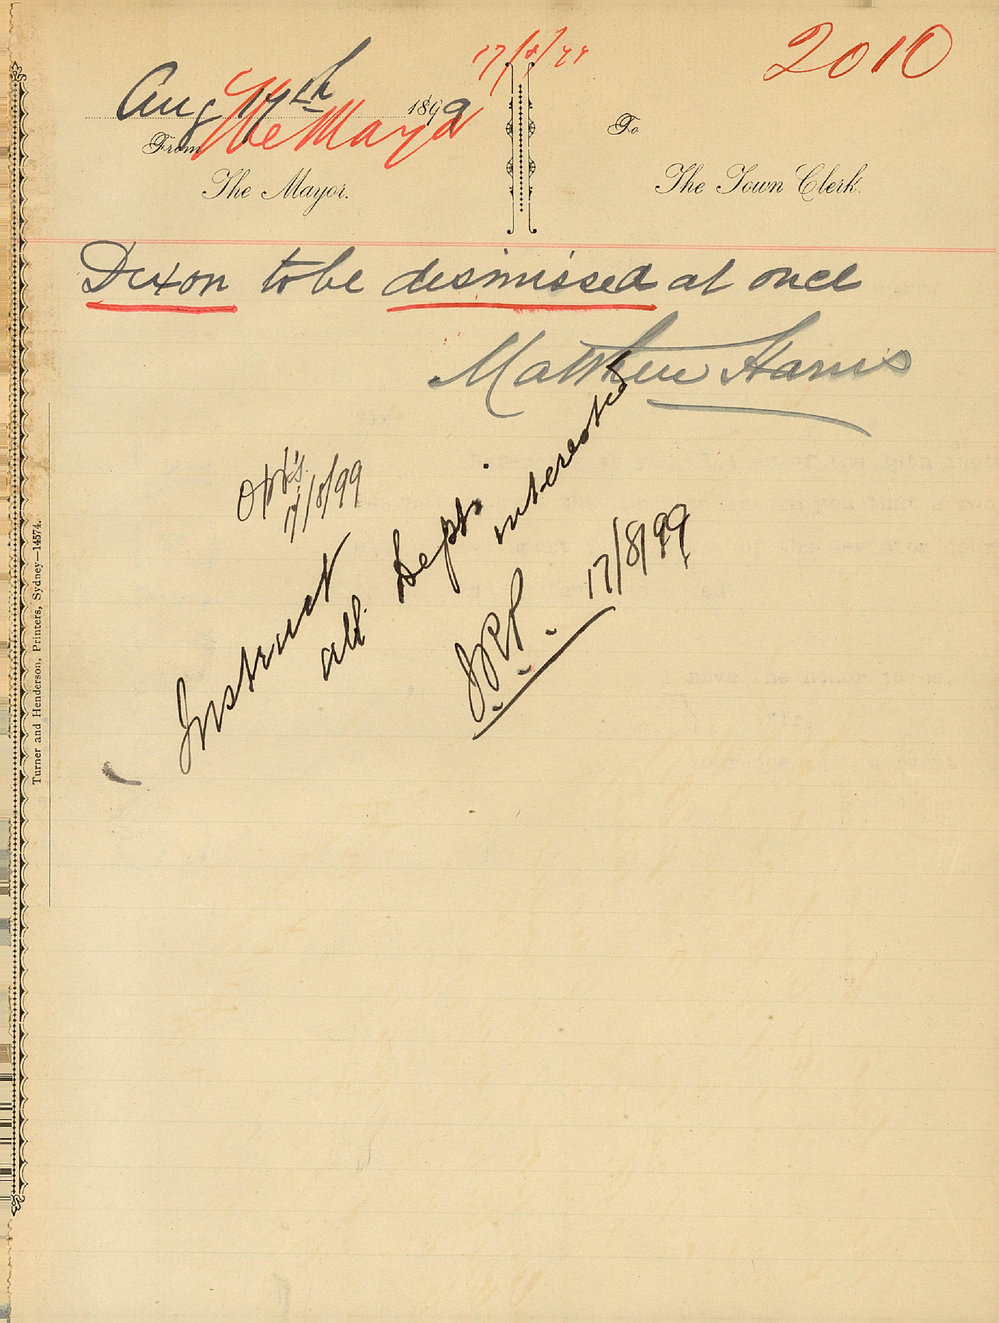 17/8/99
2010
Aug 17th 1899
The Mayor
From
To
The Mayor.
The Town Clerk.
Dixon to be dismissed at once
Matthew Harris
17/8/99
Instruct
all Depts interested
17/8/99
Turner and Henderson, Printers, Sydney—14574.